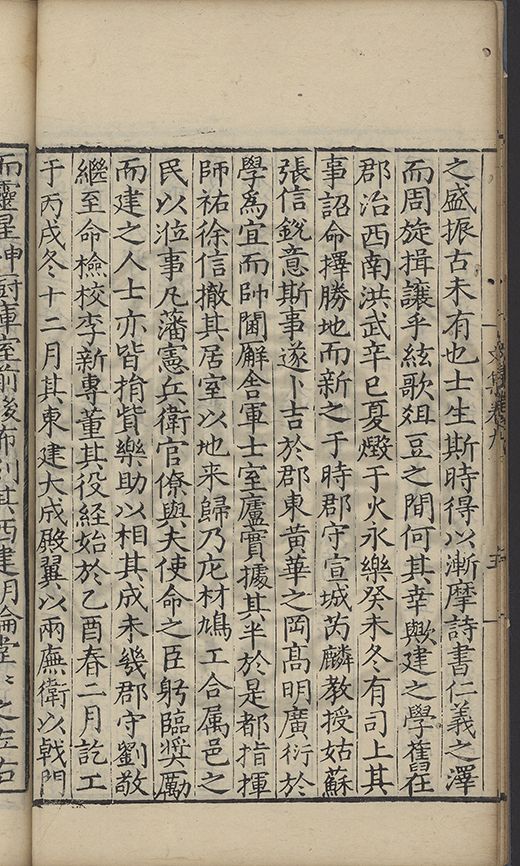 之盛振古未有也士生斯時得以漸摩詩書仁義之澤
而周旋揖讓乎絃歌俎豆之間何其幸歟建之學舊在
郡治西南洪武辛巳夏燬于火永樂癸未冬有司上其
事詔命擇勝地而新之于時郡守宣城芮麟教授姑蘇
張信銳意斯事遂卜吉於郡東黃華之岡高明廣衍於
學為宜而帥閫廨舎軍士室廬實據其半於是都指揮
師祐徐信撤其居室以地来歸乃庀材鳩工合属邑之
民以涖事凡藩憲兵衛官僚與夫使命之臣躬臨奨勵
而建之人士亦皆捐貲樂助以相其成未幾郡守劉敬
繼至命檢校李新專董其役経始於乙酉春二月訖工
于丙戌冬十二月其東建大成殿翼以兩廡衛以戟門
而靈星神厨庫室前後布列其西建明倫堂